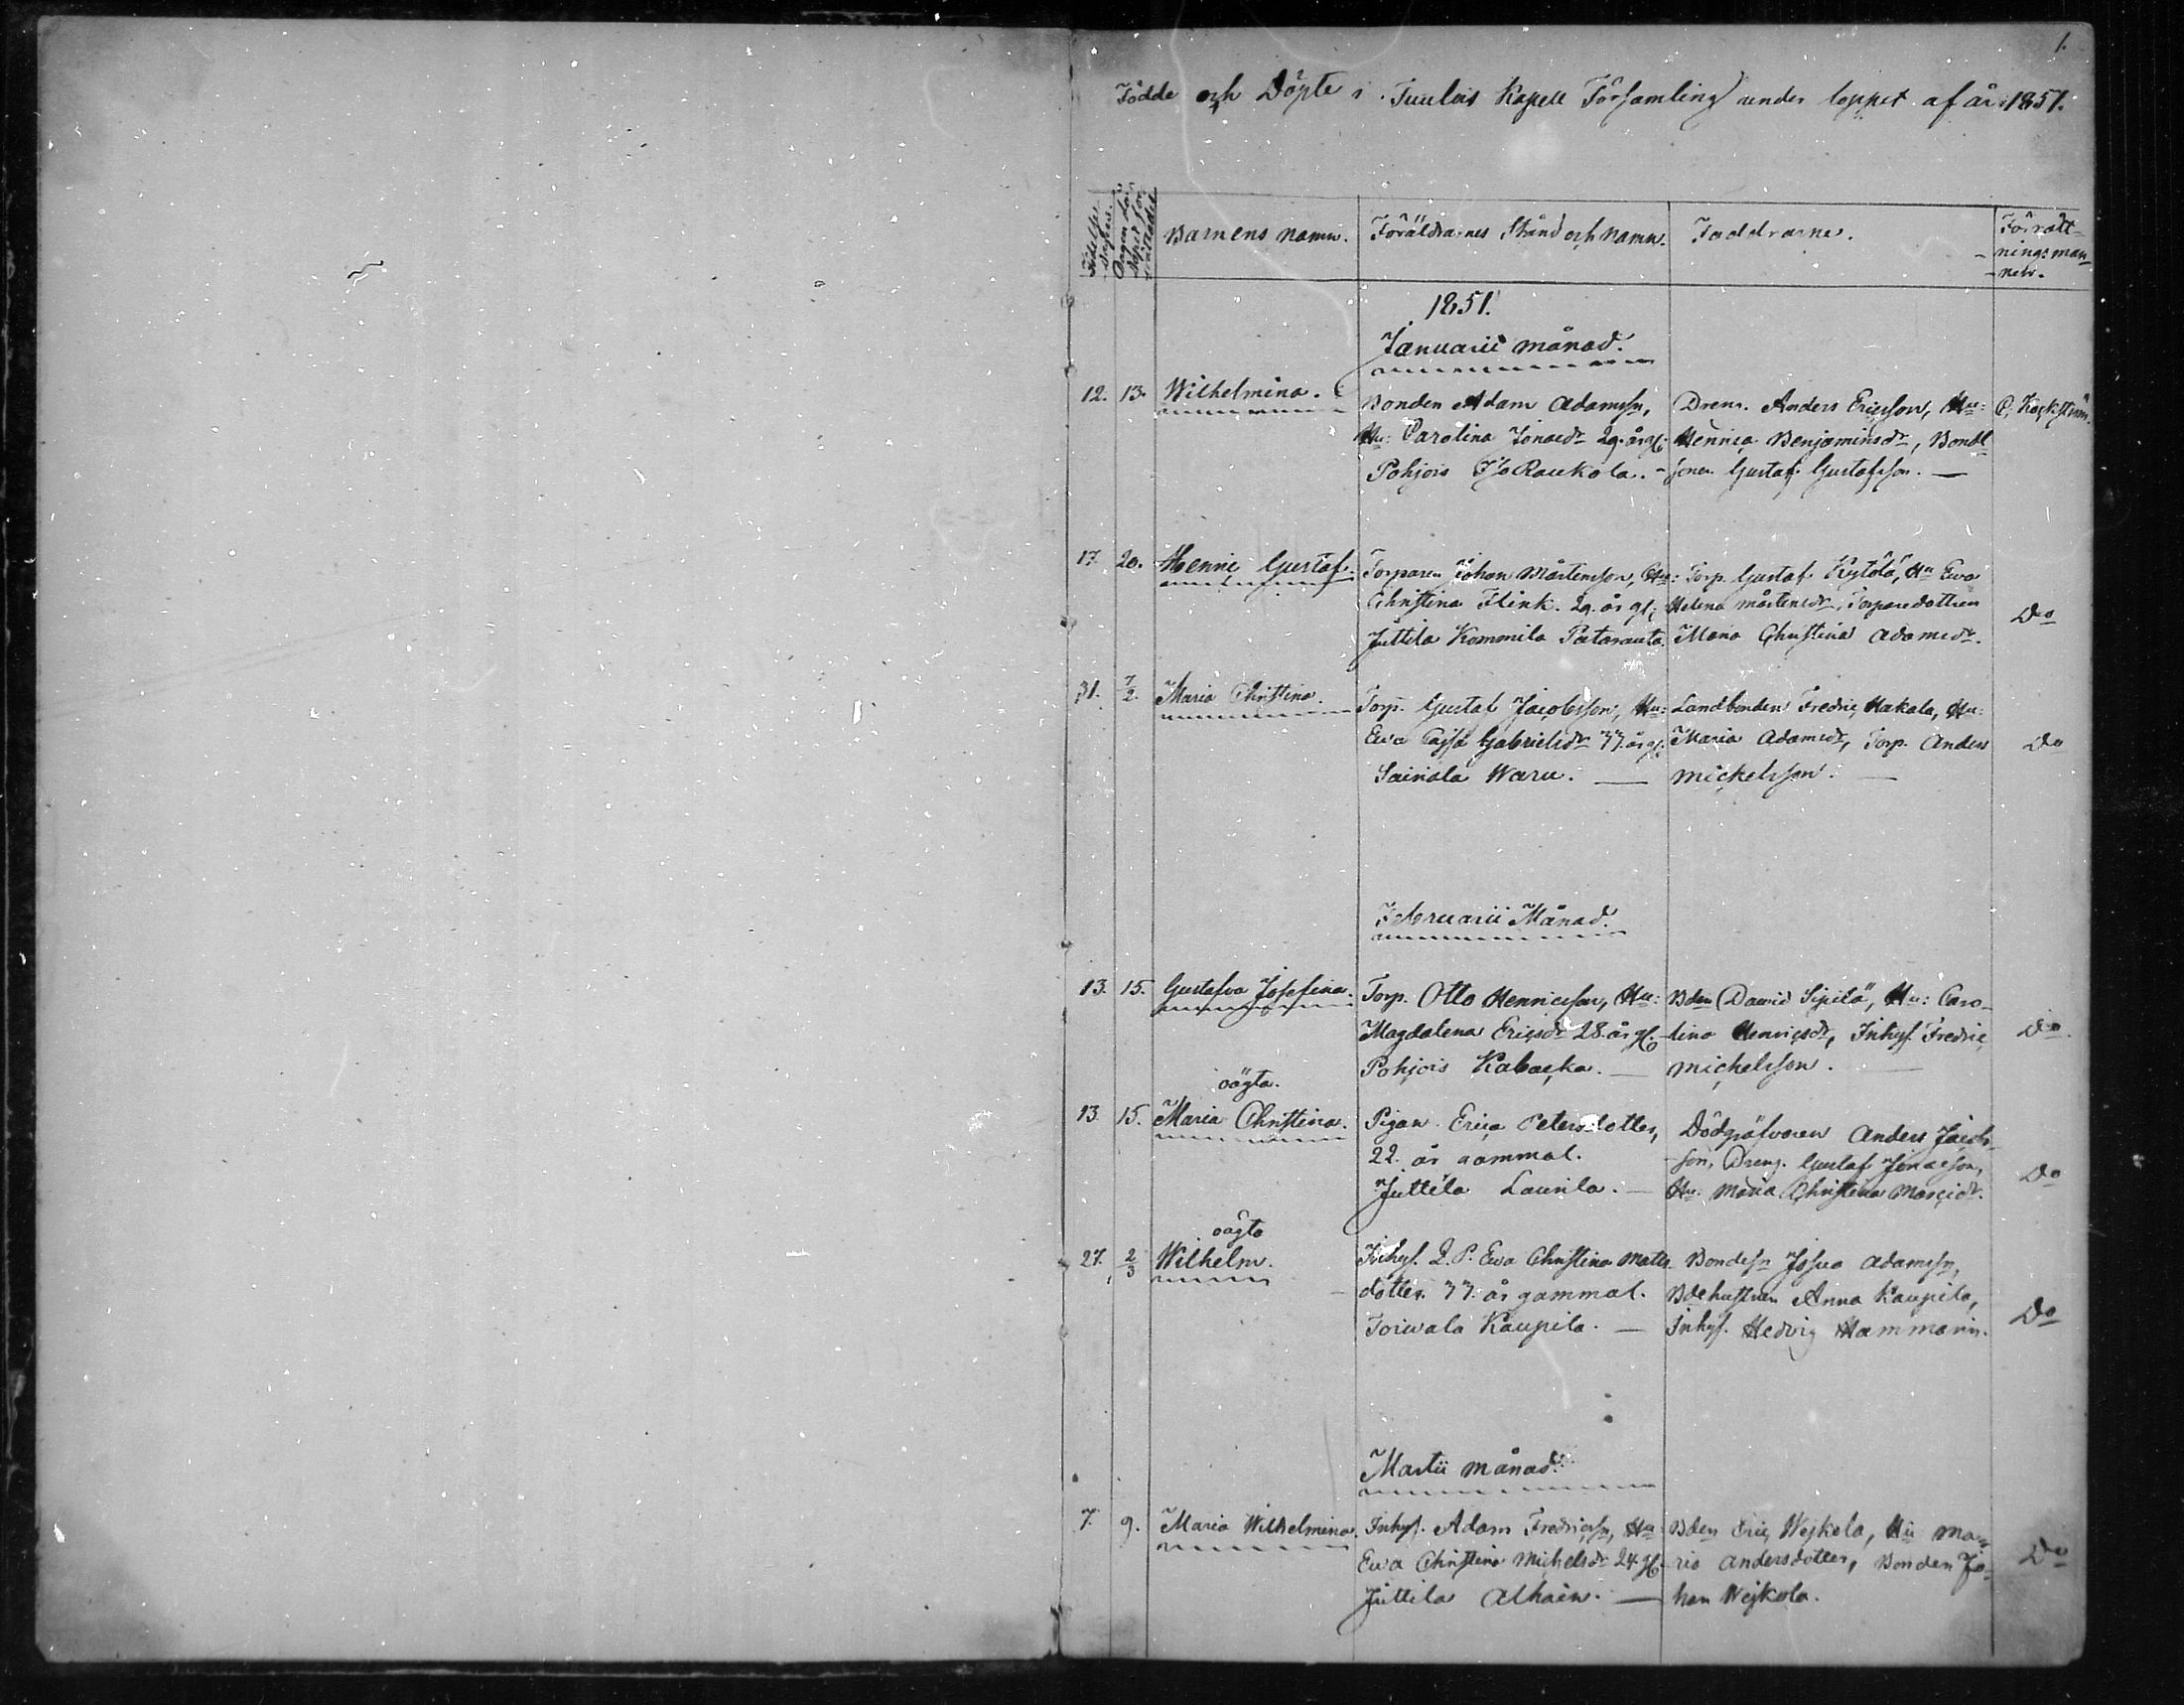 1.
Födde och Döpte i Tuulois Kapell Församling under loppet af år 1851.
Födelse dagen.
Dagen då dopet förrättades
Barnens namn.
Föräldrarnes Stånd och namn.
Faddrarne.
Förrätt-
nings man-
nen.
1851.
Januarii månad.
12. 13. Wilhelmina.
Bonden Adam Adamssn,
Hu: Carolina Jonaedr 29. år gl.
Pohjois Raukola. -
Dreng. Anders Ericsson, Hu:
Henrica Benjaminsdr, Bonde
sonen Gustaf Gustafsson. —
17. 20. Henric Gustaf.
Torparen Johan Mårtensson, Hu:
Christina Flink. 29. år gl.
Juttila Kommila Patarauta.
Torp. Gustaf Kytölä, Hu Ewa
Helena Mårtensdr, Torparedottren
Maria Christina Adamsdr.
Do
31. 7/2. Maria Christina.
Torp. Gustaf Jacobsson, Hu:
Ewa Cajsa Gabrielsdr 33. år gl.
Sairiala Waru. —
Landbonden Fredric Hakala, Hu:
Maria Adamsdr, Torp. Anders
Michelsson. —
Do
Februarii Månad.
13. 15. Gustafva Josefina.
Torp. Otto Henricsson, Hu:
Magdalena Ericsdr 28. år gl.
Pohjois —
Bden David Sipilä, Hu: Caro-
lina Henricsdr, Inhys. Fredric
Michelsson. —
Do
oägta.
13. 15. Maria Christina.
Pigan Erica Petersdotter,
22. år gammal.
Juttila Laurila. —
Dödgräfvaren Anders Jacobs-
son, Dreng. Gustaf Jonaesson,
Hu. Maria Christina
Do
oägta
27. 2/3 Wilhelm.
Inhys. Q. P. Ewa Christina Matts
dotter. 33. år gammal.
Toivala Kaupila. —
Bondesn Josua Adamssn,
Bdehustrun Anna Kaupila,
Inhys. Hedvig Hammarin.
Do
Martii månad.
7. 9. Maria Wilhelmina.
Inhys. Adam Fredricssn, Hu
Ewa Christina Michelsdr 24 gl.
Juttila Alhain. —
Bden Eric Wejkola, Hu Ma-
ria Andersdotter, Bonden Jo-
han Wejkola.
Do